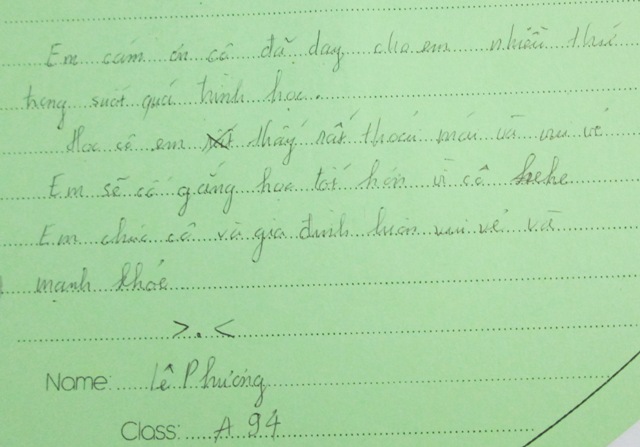 Em cám ơn cô đã dạy cho em nhiều thứ
trong suốt quá trình học.
Học cô em thấy rất thoải mái và vui vẻ
Em sẽ cố gắng học tốt hơn vì cô hehe
Em chúc cô và gia đình luôn vui vẻ và
mạnh khỏe
>.<
Name: Lê Phương
Class: A 94